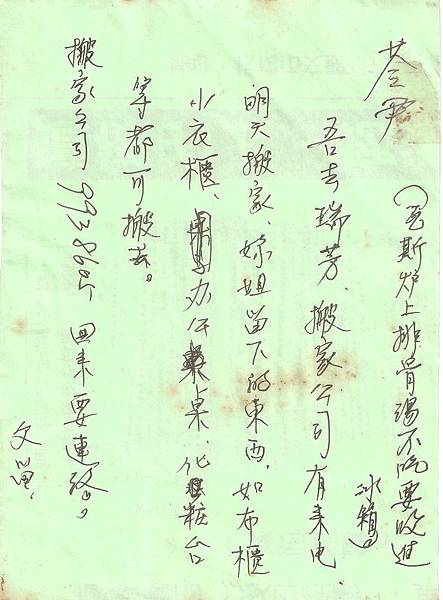 (瓦斯炉上排骨湯不吃要收進
冰箱)
吾去瑞芳、搬家公司有来电、
明天搬家、嫁姐留下的東西，如布櫃
小衣櫃、办公桌、化粧台
等都可搬去。
搬家公司 9938605 回来要連絡。
文